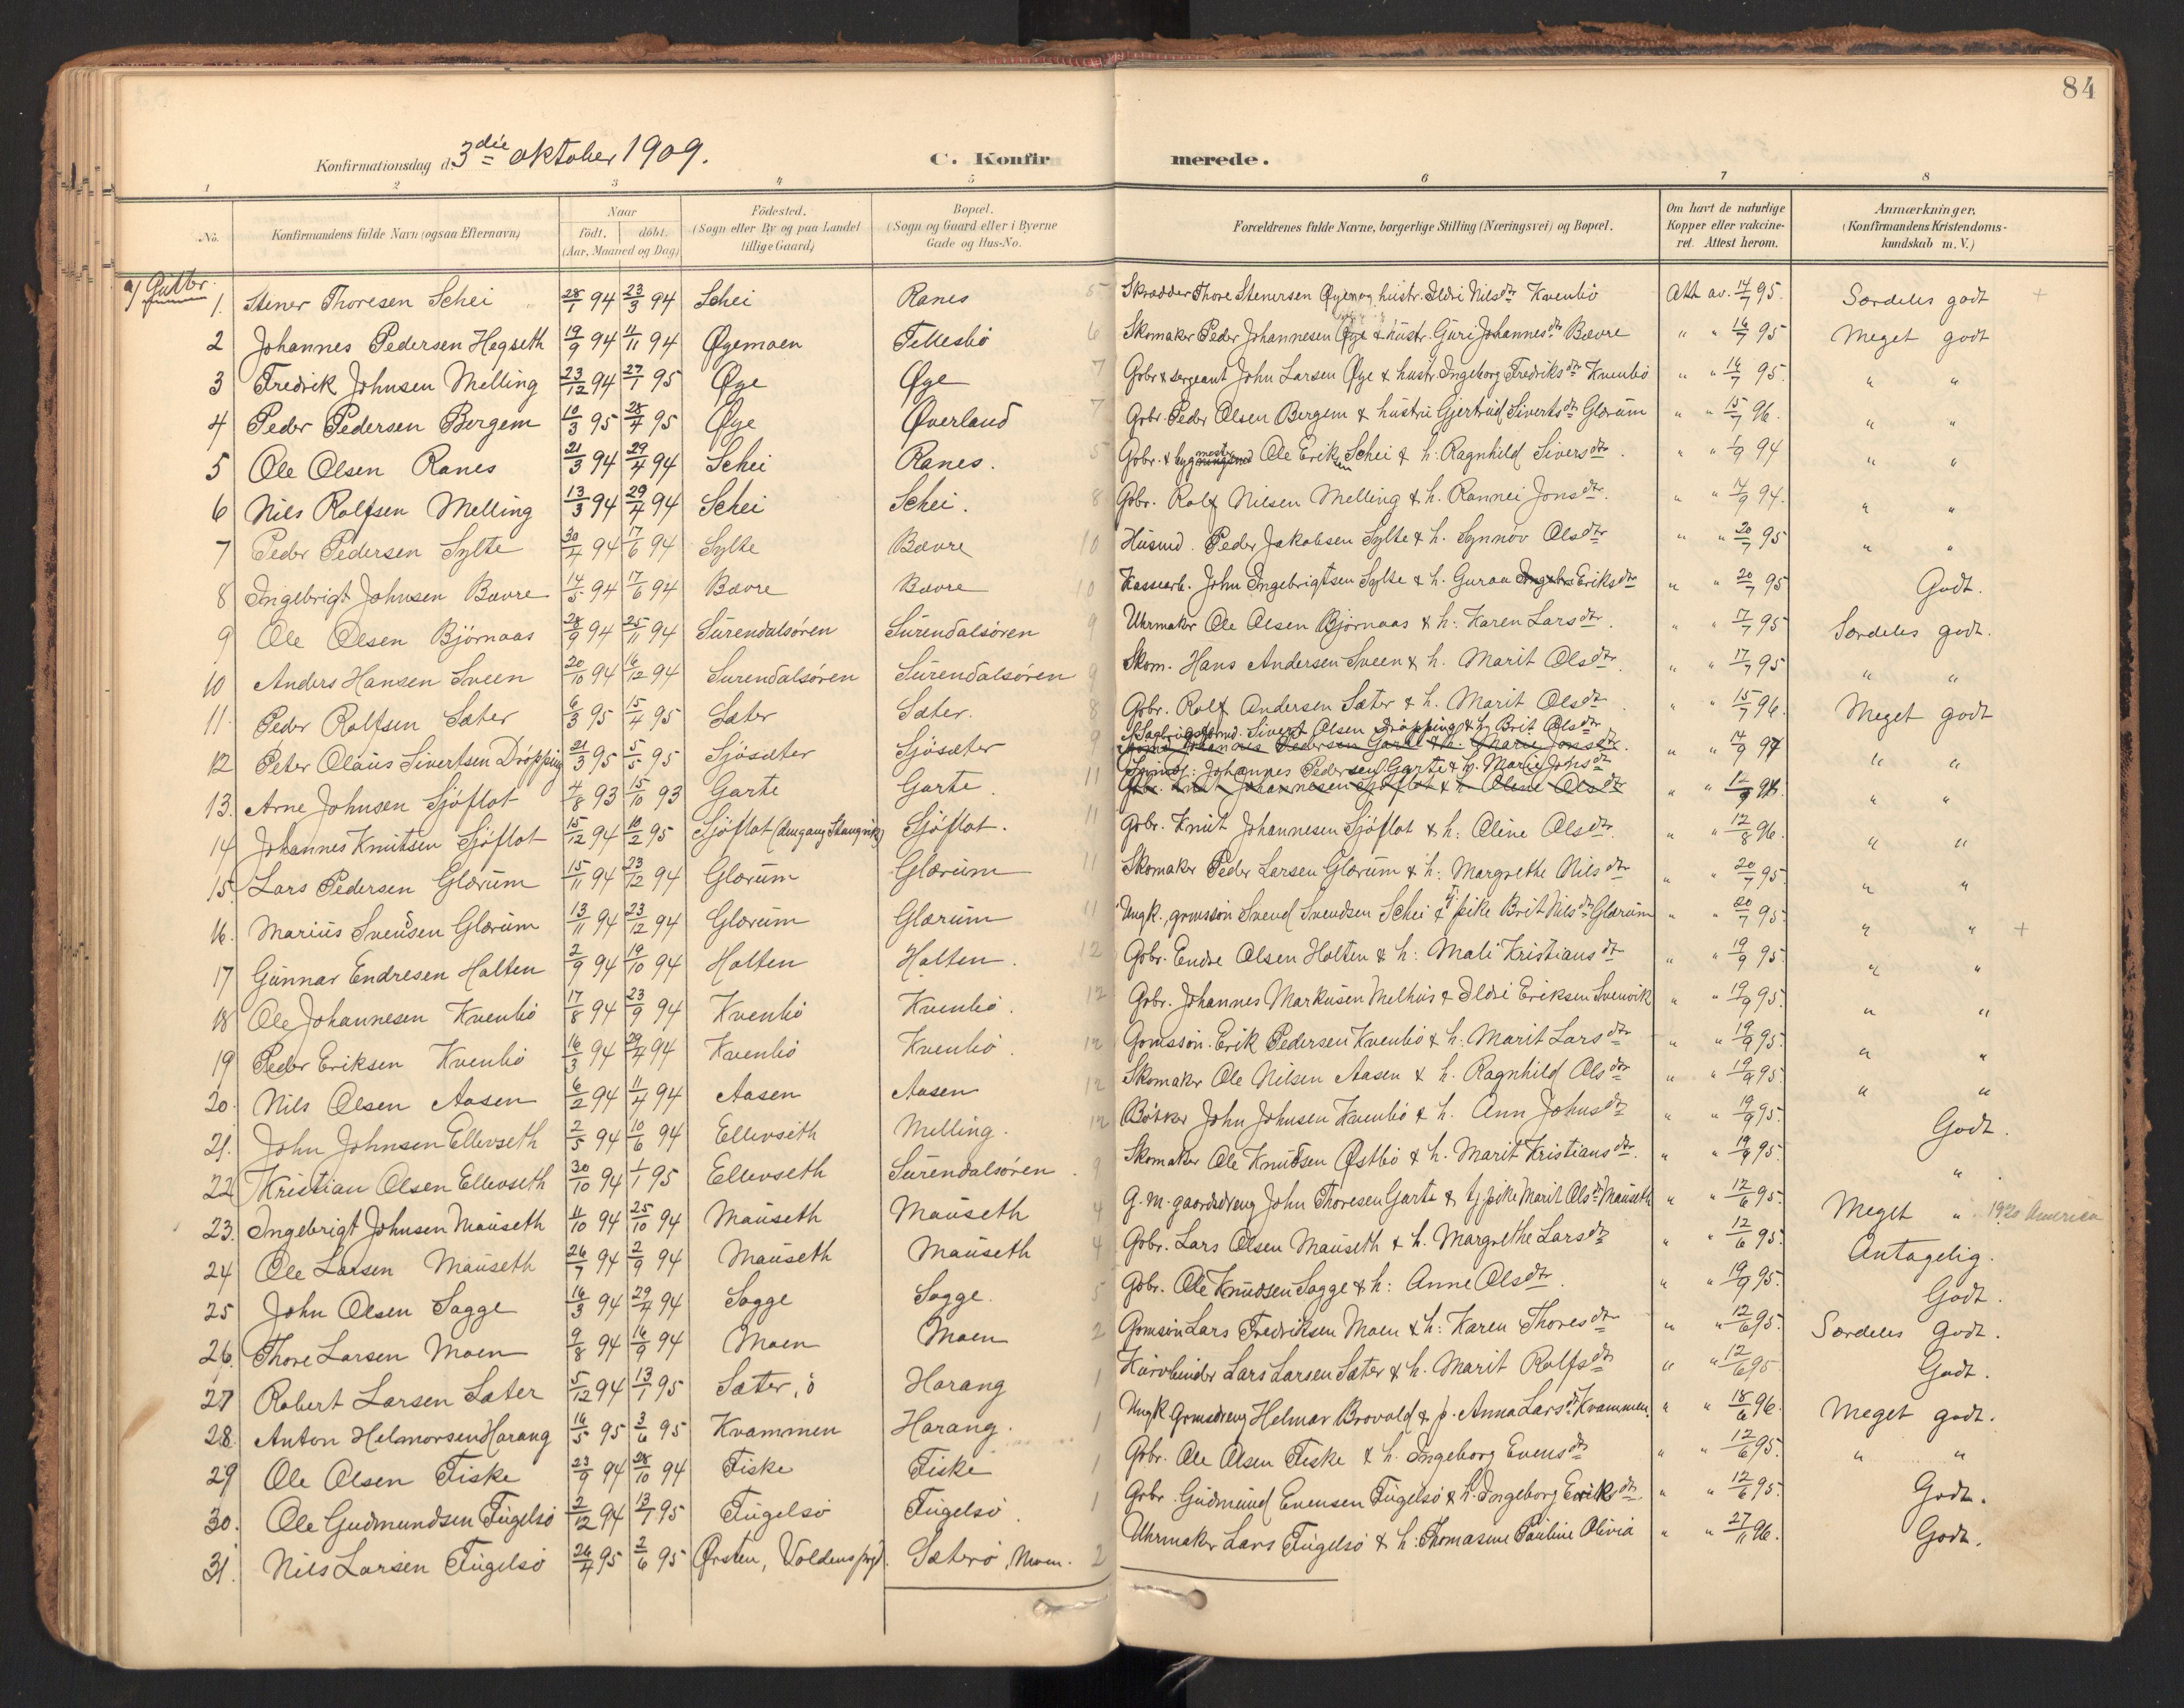 84
Konfirmationsdag d. 3die oktober 1909. C. Konfirmerede.
1 2 3 4 5 6 7 8
No. Konfirmandens fulde Navn (ogsaa Efternavn) Naar födt. döbt. (Aar, Maaned og Dag) Födested. (Sogn eller By og paa Landet tillige Gaard) Bopæl. (Sogn og Gaard eller i Byerne Gade og Hus-No. Forældrenes fulde Navne, borgerlige Stilling (Næringsvei) og Bopæl. Om havt de naturlige Kopper eller vakcineret. Attest herom. Anmærkninger. (Konfirmandens Kristendomskundskab m. V.)
a) Gutter.
1. Stener Thoresen Schei 28/1 94 23/3 94 Schei Ranes 5 Skrædder Thore Stenersen Øyen og hustr. Ildri Nilsdtr Kvenbö Att. av. 14/7 95. Særdeles godt +
2 Johannes Pedersen Hegseth 19/9 94 11/11 94 Øyemoen Tellesbö 6 Skomaker Peder Johannesen Øye & hustr. Guri Johannesdtr Bævre " " 16/7 95 Meget godt
3 Fredrik Johnsen Melling 23/12 94 27/1 95 Øye Øye 7 Gbr. & sergeant John Larsen Øye & hustr. Ingeborg Fredriksdtr Kvenbö " " 16/7 95. " "
4 Peder Pedersen Bergem 10/3 95 28/4 95 Øye Øverland 7 Gbr. Peder Olsen Bergem & hustru Gjertrud Sivertsdtr Glærum " " 15/7 96. " "
5 Ole Olsen Ranes 21/3 94 29/4 94 Schei Ranes. 5 Gbr. & bygmestr. Ole Eriksen Schei & h. Ragnhild Siversdtr. " " 1/9 94 " "
6 Nils Rolfsen Melling 13/3 94 29/4 94 Schei Schei. 8 Gbr. Rolf Nilsen Melling & h. Rannei Jonsdtr. " " 14/9 94. " "
7 Peder Pedersen Sylte 30/4 94 17/6 94 Sylte Bævre 10 Husmd. Peder Jakobsen Sylte & h. Synnöv Olsdtr " " 20/7 95 " "
8 Ingebrigt Johnsen Bævre 14/5 94 17/6 94 Bævre Bævre 10 Kassearb. John Ingebrigtsen Sylte & h. Guraa Eriksdtr " " 20/7 95 Godt.
9 Ole Olsen Björnaas 28/9 94 25/11 94 Surendalsören Surendalsören 9 Uhrmaker Ole Olsen Bjørnaas & h. Karen Larsdtr. " " 17/7 95 Særdeles godt.
10 Anders Hansen Sveen 20/10 94 16/12 94 Surendalsøren Surendalsøren 9 Skom. Hans Andersen Sveen & h. Marit Olsdtr. " " 17/7 95 " "
11. Peder Rolfsen Sæter 6/3 95 15/4 95 Sæter Sæter. 8 Gbr. Rolf Andersen Sæter & h. Marit Olsdtr. " " 15/7 96. Meget godt
12 Peter Olaus Sivertsen Dröpping 21/3 95 5/5 95 Sjösæter Sjösæter 9 Sagbrugsfrmd. Sivert Olsen Dröpping & h. Brit Olsdtr " " 14/9 97 " "
13. Arne Johnsen Sjöflot 4/8 93 15/10 93 Garte Garte. 11 Johannes Pedersen Garte & h. Marie Jonsdtr " " 12/9 94. " "
14 Johannes Knutsen Sjöflot 15/12 94 10/2 95 Sjöflot (Stangvik) Sjöflot. 11 Gbr. Knut Johannesen Sjöflot & h. Oline Olsdtr. " " 12/8 96. " "
15. Lars Pedersen Glærum 15/11 94 23/12 94 Glærum Glærum 11 Skomaker Peder Larsen Glærum & h. Margrethe Nilsdtr " " 20/7 95. " "
16. Marius Svendsen Glærum 13/11 94 23/12 94 Glærum Glærum 11 Ungk., grmssön Svend Svendsen Schei & tj. pike Brit Nilsdtr Glærum " " 20/7 95. " " +
17 Gunnar Endresen Holten 2/9 94 19/10 94 Holten Holten. 12 Gbr. Endre Olsen Holten & h. Mali Kristiansdtr " " 19/9 95. " "
18 Ole Johannesen Kvenbö 17/8 94 23/9 94 Kvenbö Kvenbö. 12 Gbr. Johannes Markusen Melhus & Ildri Eriksen Svenvik " " 19/9 95. " "
19 Peder Eriksen Kvenbö 16/3 94 29/4 94 Kvenbö Kvenbö. 12 Grmssön. Erik Pedersen Kvenbö & h. Marit Larsdtr " " 19/9 95. " "
20. Nils Olsen Aasen 6/2 94 11/4 94 Aasen Aasen 12 Skomaker Ole Nilsen Aasen & h. Ragnhild Olsdtr " " 19/9 95. " "
21. John Johnsen Ellevseth 2/5 94 10/6 94 Ellevseth Melling. 12 Bötker John Johnsen Kvenbö & h. Ann Johnsdtr " " 19/9 95. Godt.
22 Kristian Olsen Ellevseth 30/10 94 1/1 95 Ellevseth Surendalsøren. 9 Skomaker Ole Knudsen Østbö & h. Marit Kristiansdtr. " " 19/9 95. "
23. Ingebrigt Johnsen Mauseth 11/10 94 25/10 94 Mauseth Mauseth 4 G. m. gaardsdreng John Thoresen Garte & tj. pike Marit Olsdtr Mauseth " " 12/6 95. Meget " 1920 America
24 Ole Larsen Mauseth 26/7 94 2/9 94 Mauseth Mauseth 4 Gbr. Lars Olsen Mauseth & h. Margrethe Larsdtr " " 12/6 95. Antagelig.
25 John Olsen Sagge 16/3 94 29/4 94 Sogge Sogge. 5 Gbr. Ole Knudsen Sagge & h: Anne Olsdtr. " " 19/9 95. Godt.
26. Thore Larsen Moen 9/8 94 16/9 94 Moen Moen 2 Grmsön Lars Fredriksen Moen & h: Karen Thoresdtr " " 12/6 95. Særdeles godt.
27 Robert Larsen Sæter 5/12 94 13/1 95 Sæter, ö Harang 1 Kurvbinder Lars Larsen Sæter & h. Marit Rolfsdtr " " 12/6 95 Godt.
28. Anton Helmersen Harang 16/5 95 3/6 95 Kvammen Harang. 1 Ungk. grmsdreng Helmer Brovold & p. Anna Larsdtr Kvammen. " " 18/6 96. Meget godt.
29 Ole Olsen Fiske 23/9 94 28/10 94 Fiske Fiske 1 Gbr. Ole Olsen Fiske & h. Ingeborg Evensdtr " " 12/6 95. " "
30. Ole Gudmundsen Fugelsö 2/12 94 13/1 95 Fugelsö Fugelsö. 1 Gbr. Gudmund Evensen Fugelsö & h. Ingeborg Eriksdtr. " " 12/6 95. Godt.
31. Nils Larsen Fugelsö 26/4 95 2/6 95 Ørsten, Voldens prgj. Sæterö, Moen. 2 Uhrmaker Lars Fugelsö & h: Thomasine Pauline Olivia " " 27/11 96. Godt.